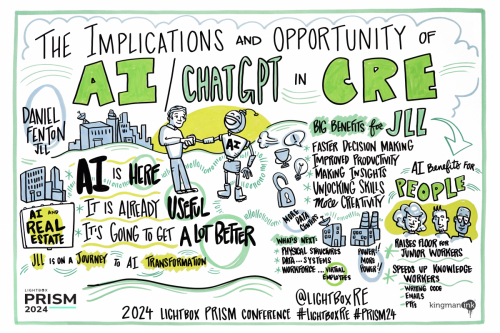 THE IMPLICATIONS AND OPPORTUNITY OF
AI / CHATGPT IN CRE
DANIEL
FENTON
JLL
AI
AI IS HERE
IT IS ALREADY USEFUL
IT'S GOING TO GET A LOT BETTER
AI AND
REAL
ESTATE
JLL IS ON A JOURNEY TO AI TRANSFORMATION
BIG BENEFITS for JLL
FASTER DECISION MAKING
IMPROVED PRODUCTIVITY
MAKING INSIGHTS
UNLOCKING SKILLS
More CREATIVITY
MORE
DATA
CENTERS
WHAT'S NEXT:
PHYSICAL STRUCTURES
DATA... SYSTEMS
WORKFORCE... VIRTUAL
EMPLOYEES
POWER!
MORE
POWER!
AI BENEFITS FOR
PEOPLE
RAISES FLOOR FOR
JUNIOR WORKERS
SPEEDS UP KNOWLEDGE
WORKERS
WRITING CODE
EMAILS
PPTs
LIGHTBOX
PRISM
2024
2024 LIGHTBOX PRISM CONFERENCE
@LIGHTBOXRE
#LIGHTBOXRE #PRISM24
kingmanink